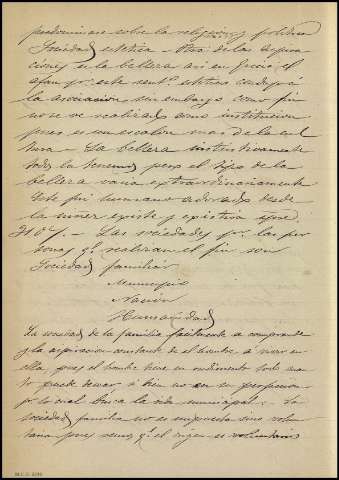 predominase sobre la religioso y político
Sociedad estética – Otra de las aspira-
ciones es la belleza así en Grecia el
afan pr. este sentº estético condujo á
la asociacion, sin embargo como fin
no se ve realizado como institucion
pues es un escalon mas de la cul
tura – La belleza instintivamente
todos la tenemos pero el tipo de la
belleza varia extraordinariamente
Este fin humano adorado desde
la niñez existe y existiria igual
HOY. – Las sociedades pr. las per
sonas q. realizan el fin son
Sociedad familiar
Municipio
Nacion
Humanidad
La sociedad de la familia facilmente se comprende
y la aspiracion constante de el hombre á vivir en
ella, pues el hombre tiene un
to puede tener, si bien no en su profesion
pr. lo cual busca la vida municipal – La
sociedad familia no es impuesta sino volun
taria pues vemos q. el origen es voluntario